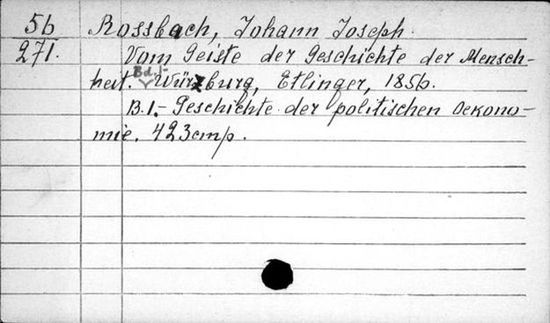 56 Rossbach, Johann Joseph.
271. Vom Geiste der Geschichte der Mensch-
heit. Bd. 1- Würzburg, Etlinger, 1856.
B.1.- Geschichte der politischen Oekono-
mie. 423 стр.